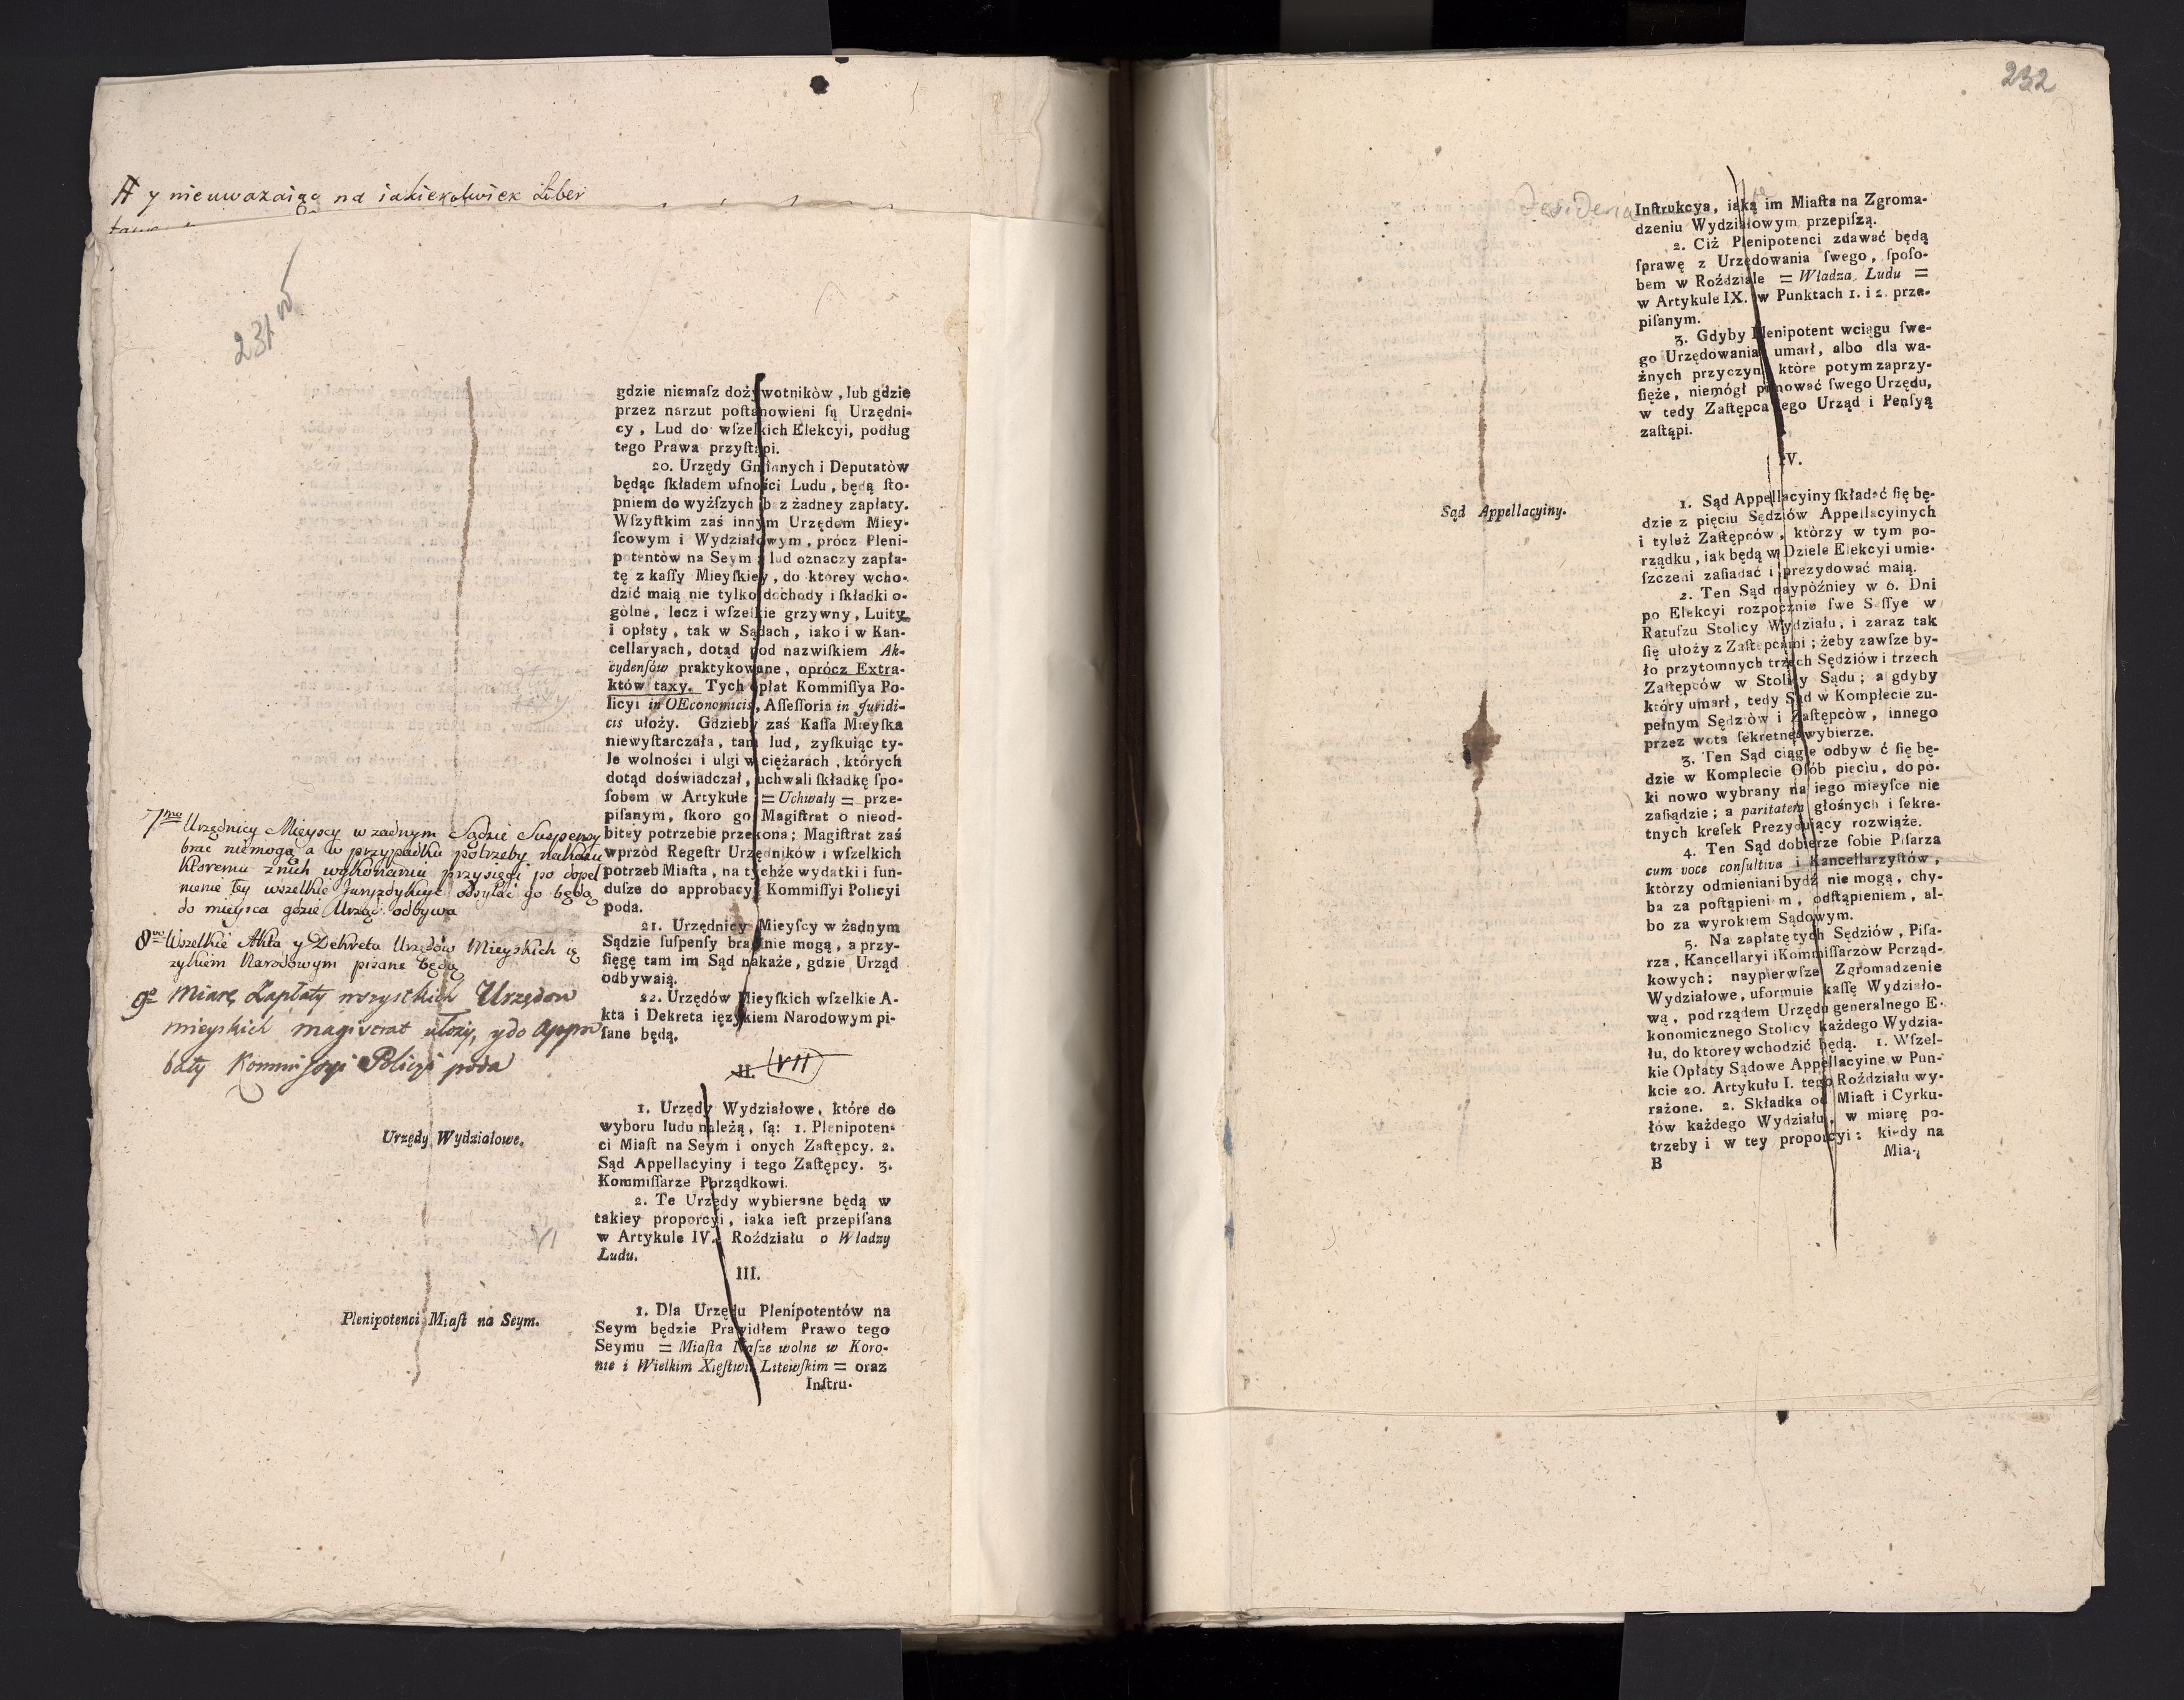 # y nieuwazaiąc na iakiekolwiek Liber
231 vo
gdzie niemaſz dożywotników, lub gdzie
przez narzut poſtanowieni ſą Urzędni-
cy, Lud do wſzelkich Elekcyi, podług
tego Prawa przyſtąpi.
20. Urzędy Gminnych i Deputatòw
będąc ſkładem ufności Ludu, będą ſto-
pniem do wyżſzych bez żadney zapłaty.
Wſzyſtkim zaś innym Urzędom Miey-
ſcowym i Wydziałowym, prócz Pleni-
potentòw na Seym; lud oznaczy zapła-
tę z kaſſy Mieyſkiey, do którey wcho-
dzić maią nie tylko dochody i ſkładki o-
gólne, lecz i wſzelkie grzywny, Luity
i opłaty, tak w Sądach, iako i w Kan-
cellaryach, dotąd pod nazwiſkiem Ak-
cydenſów praktykowane, oprócz Extra-
któw taxy. Tych opłat Kommiſſya Po-
licyi in OEconomicis, Aſſeſſoria in Juridi-
cis ułoży. Gdzieby zaś Kaſſa Mieyſka
niewyſtarczała, tam lud, zyſkuiąc ty-
le wolności i ulgi w ciężarach, których
dotąd doświadczał, uchwali ſkładkę ſpo-
ſobem w Artykule = Uchwały = prze-
piſanym, ſkoro go Magiſtrat o nieod-
bitey potrzebie przekona; Magiſtrat zaś
wprzòd Regeſtr Urzędników i wſzelkich
potrzeb Miaſta, na tychże wydatki i fun-
duſze do approbacyi Kommiſſyi Policyi
poda.
21. Urzędnicy Mieyſcy w żadnym
Sądzie ſuſpenſy brać nie mogą, a przy-
ſięgę tam im Sąd nakaże, gdzie Urząd
odbywaią.
22. Urzędów Mieyſkich wſzelkie A-
kta i Dekreta ięzykiem Narodowym pi-
ſane będą.
7mo Urzędnicy Mieyscy w zadnym Sądzie Suspensy
brac niemogą a w przypadku potrzeby nakazu
ktoremu z nich wykonania przysięgi po dopeł
nienie tey wszelkie Juryzdykcye odsyłać go będą
do mieysca gdzie Urząd odbywa
8vo Wszelkie Akta y Dekreta Urzędów Mieyskich ię
zykiem Narodowym pisane będą
9o Miarę Zapłaty wszystkich Urzędow
mieyskich magistrat ułoży, y do appro
baty Kommissyi Policyi poda
II. VII
Urzędy Wydziałowe.
1. Urzędy Wydziałowe, które do
wyboru ludu należą, ſą: 1. Plenipoten-
ci Miaſt na Seym i onych Zaſtępcy. 2.
Sąd Appellacyiny i tego Zaſtępcy. 3.
Kommiſſarze Porządkowi.
2. Te Urzędy wybierane będą w
takiey proporcyi, iaka ieſt przepiſana
w Artykule IV. Roździału o Władzy
Ludu.
VI
III.
Plenipotenci Miaſt na Seym.
1. Dla Urzędu Plenipotentów na
Seym będzie Prawidłem Prawo tego
Seymu = Miaſta Naſze wolne w Koro-
nie i Wielkim Xięſtwie Litewſkim = oraz
Inſtru-
232
Desideria
Inſtrukcya, iaką im Miaſta na Zgroma-
dzeniu Wydziałowym przepiſzą.
2. Ciż Plenipotenci zdawać będą
ſprawę z Urzędowania ſwego, ſpoſo-
bem w Roździale = Władza Ludu =
w Artykule IX. w Punktach 1. i 2. prze-
piſanym.
3. Gdyby Plenipotent wciągu ſwe-
go Urzędowania umarł, albo dla wa-
żnych przyczyn, które potym zaprzy-
ſięże, niemógł pilnować ſwego Urzędu,
w tedy Zaſtępca iego Urząd i Penſyą
zaſtąpi.
IV.
Sąd Appellacyiny.
1. Sąd Appellacyiny ſkładać ſię bę-
dzie z pięciu Sędziów Appellacyinych
i tyleż Zaſtępców, którzy w tym po-
rządku, iak będą w Dziele Elekcyi umie-
ſzczeni zaſiadać i prezydować maią.
2. Ten Sąd naypòźniey w 6. Dni
po Elekcyi rozpocznie ſwe Seſſye w
Ratuſzu Stolicy Wydziału, i zaraz tak
ſię ułoży z Zaſtępcami; żeby zawſze by-
ło przytomnych trzech Sędziów i trzech
Zaſtępców w Stolicy Sądu; a gdyby
który umarł, tedy Sąd w Komplecie zu-
pełnym Sędziòw i Zaſtępców, innego
przez wota ſekretne wybierze.
3. Ten Sąd ciągle odbywać ſię bę-
dzie w Komplecie Oſób pięciu, dopó-
ki nowo wybrany na iego mieyſce nie
zaſiądzie; a paritatem głośnych i ſekre-
tnych kreſek Prezyduiący rozwiąże.
4. Ten Sąd dobierze ſobie Piſarza
cum voce conſultiva i Kancellarzyſtów,
którzy odmieniani bydź nie mogą, chy-
ba za poſtąpieniem, odſtąpieniem, al-
bo za wyrokiem Sądowym.
5. Na zapłatę tych Sędziów, Piſa-
rza, Kancellaryi i Kommiſſarzòw Porząd-
kowych; naypierwſze Zgromadzenie
Wydziałowe, uformuie kaſſę Wydziało-
wą, pod rządem Urzędu generalnego E-
konomicznego Stolicy każdego Wydzia-
łu, do którey wchodzić będą. 1. Wſzel-
kie Opłaty Sądowe Appellacyine w Pun-
kcie 20. Artykułu I. tego Roździału wy-
rażone. 2. Składka od Miaſt i Cyrku-
łów każdego Wydziału, w miarę po-
trzeby i w tey proporcyi: kiedy na
B
Mia-